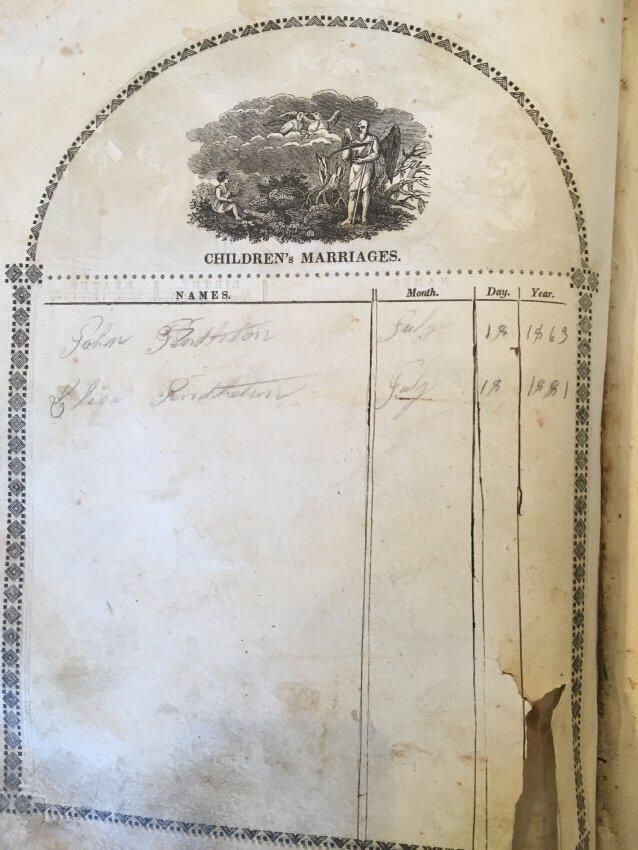 CHILDREN's MARRIAGES.
NAMES. Month. Day. Year.
John Pendleton July 18 1863
Eliza Pendleton July 18 1881